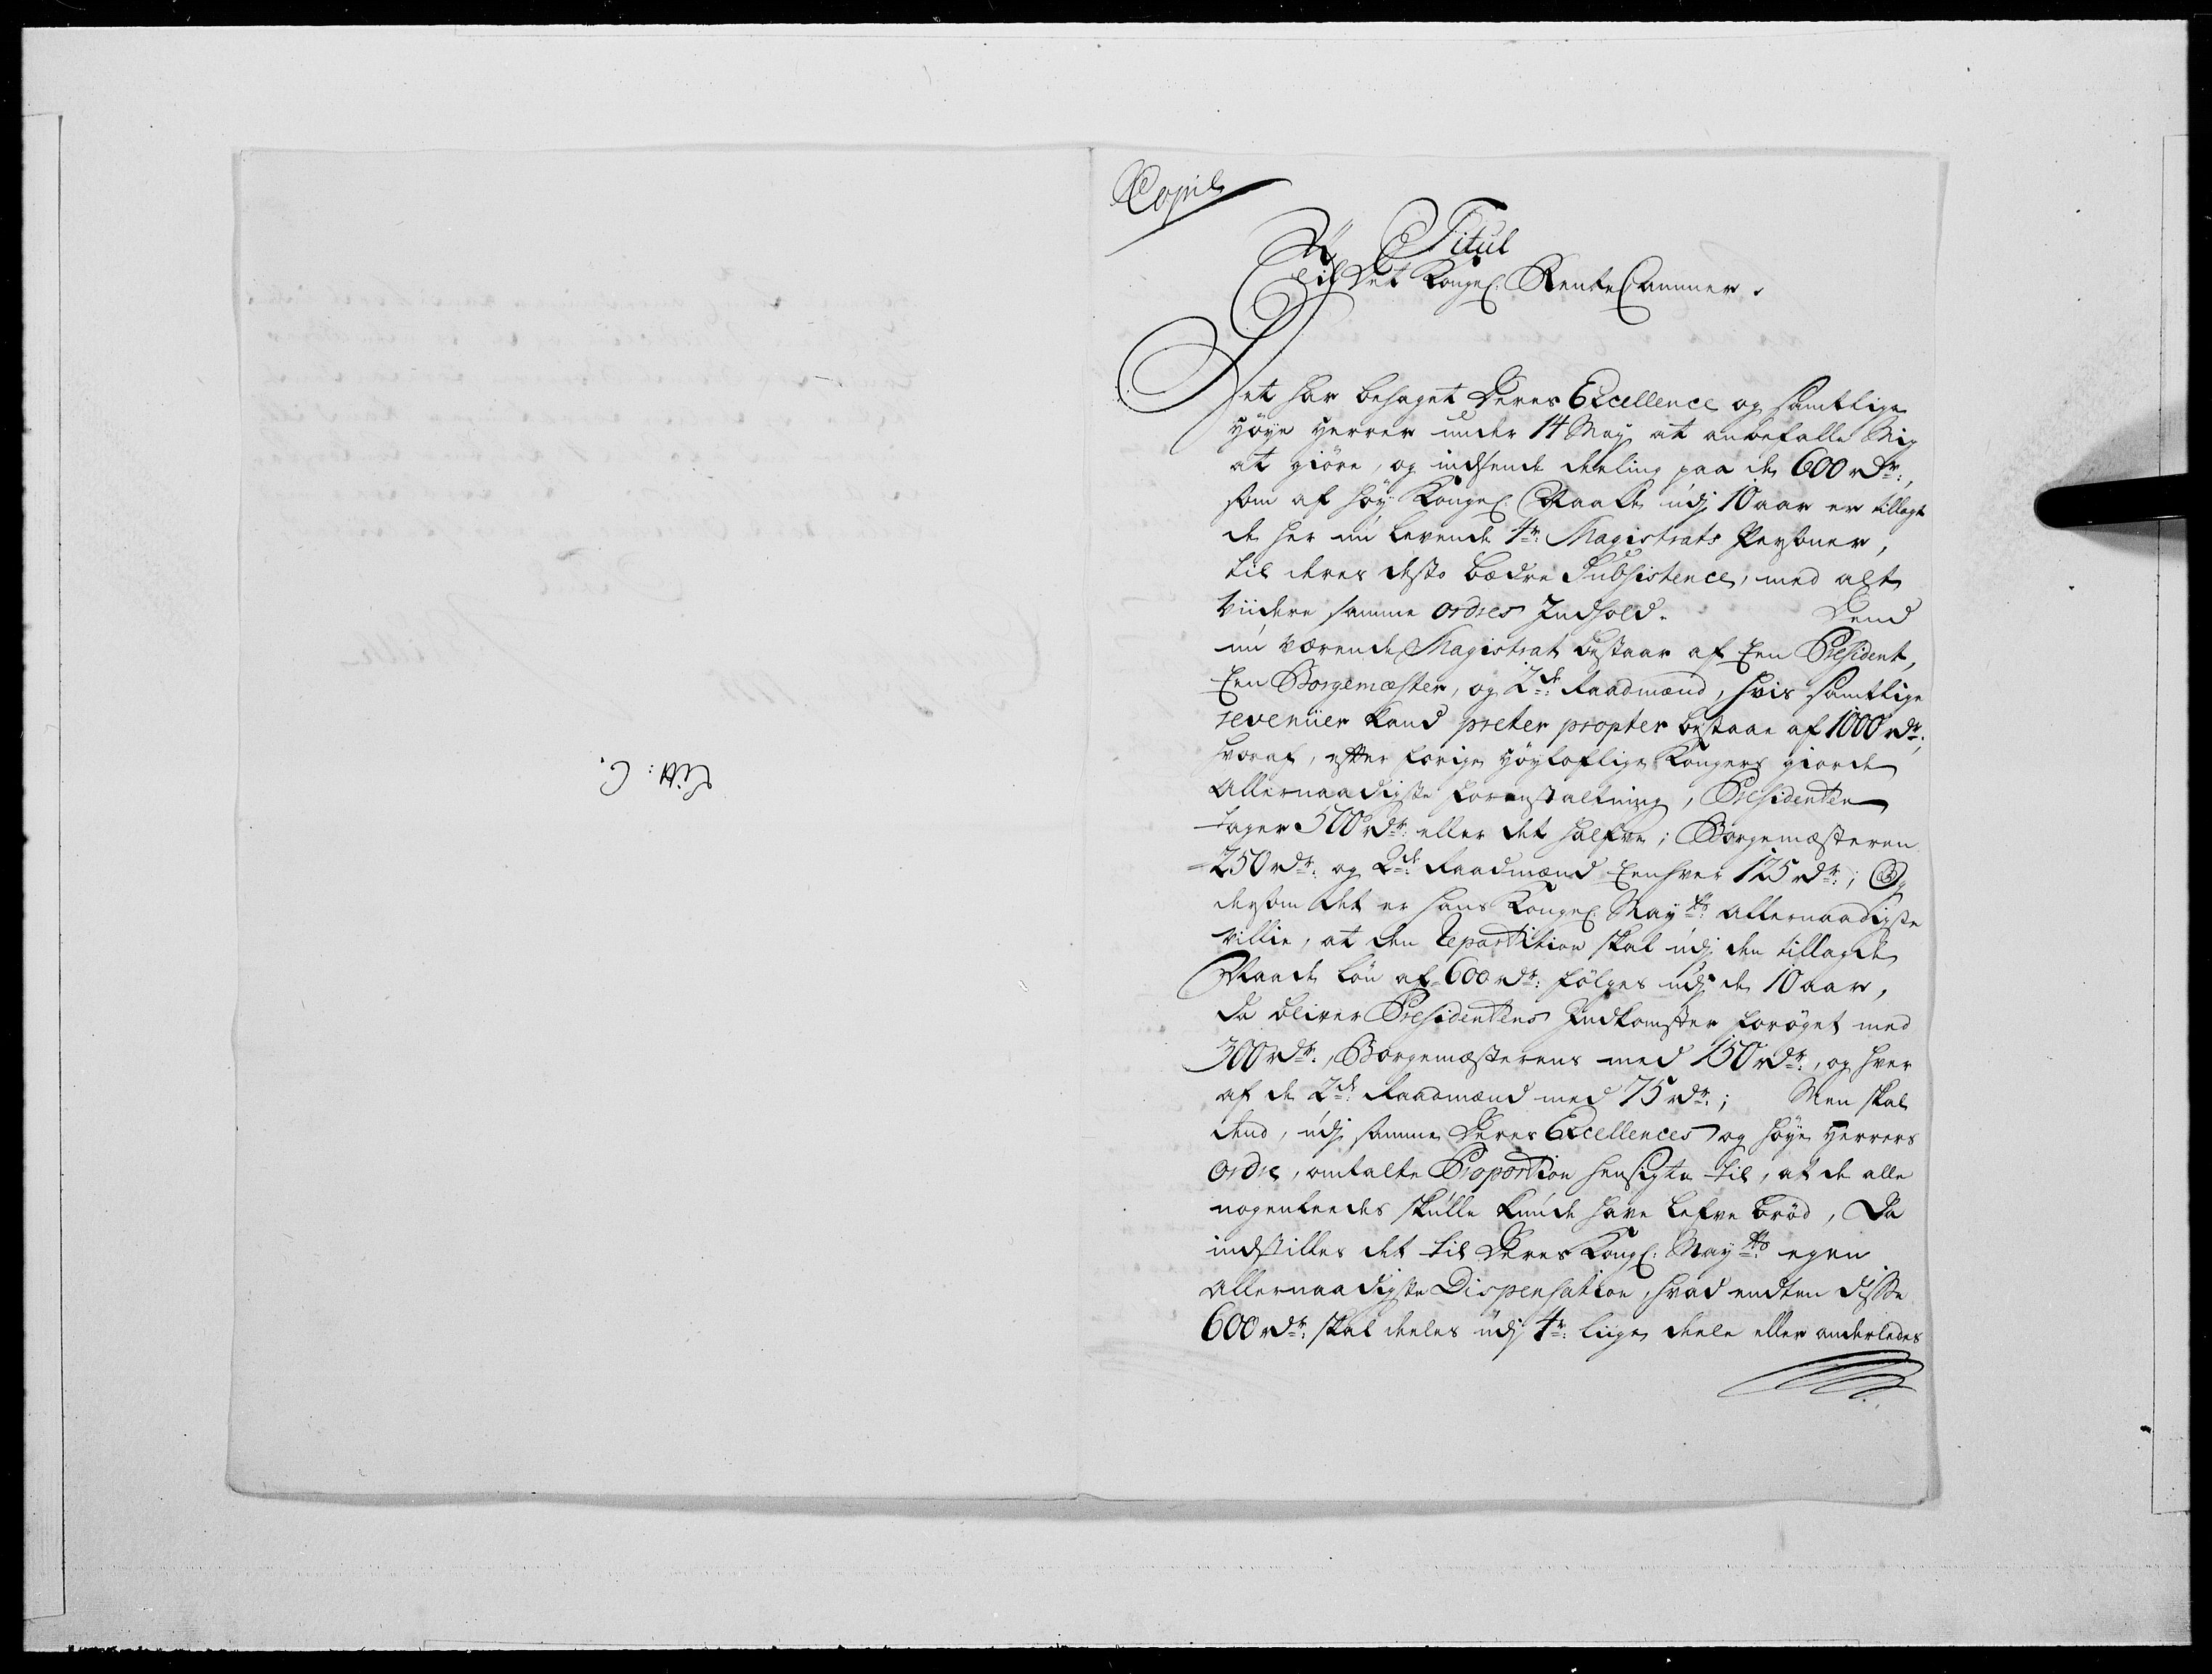 Copie
Titul
Til Det Kongel: Rente Cammer.
Det har behaget Deres Excellence og samtlige
Høye Herrer under 14 May at anbefalle Mig
at giøre, og indsende deeling paa de 600 rdr:,
som af høy Kongel: Naade udj 10 aar er tillagt
de her nu levende 4re: Magistrats Persboner,
til deres desto bædre Subsistence, med alt
viidere samme ordres Indhold. Dend
nu værende Magistrat bestaar af Een President,
Een Borgemæster, og 2de: Raadmænd, hvis samtlige
revenuer kand preter propter bestaae af 1000 rdr:,
hvoraf, efter forige høyloflige Kongers giorde
Allernaadigste foranstaltning, Presidenten
tager 500 rdr: eller det halfve; Borgemæsteren
250 rdr: og 2de: Raadmænd Eenhver 125 rdr:; Og
dersom det er hans Kongel: Mayts: allernaadigste
villie, at den repartition skal udj den tillagde
Naade løn af 600 rdr: følges udj de 10 aar,
da bliver Presidentens Indkomster forøget med
300 rdr:, Borgemæsterens med 150 rdr:, og hver
af de 2de: Raadmænd med 75 rdr:; Men skal
dend, udj samme Deres Excellences og høye Herrers
ordre, omtalte Proportion hensigte til, at de alle
nogenleedes skulle kunde have lefve brød, Da
indstilles det til Deres Kongl: Mayts: egen
allernaadigste Dispensation, hvad endten disse
600 rdr: skal deeles udj 4re: liige deele eller anderledes
Litt: C.